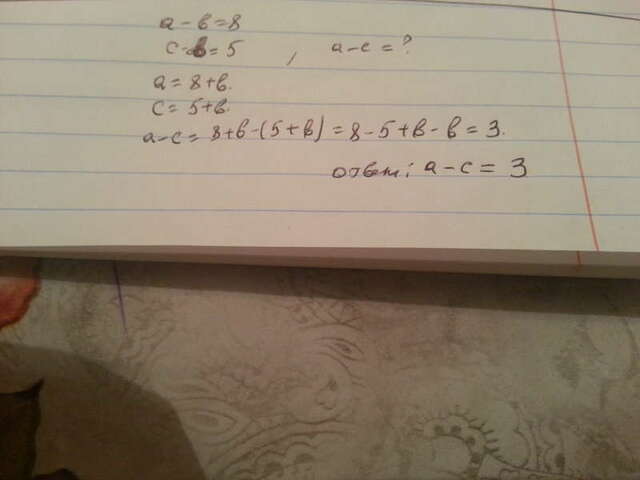 a - в = 8
c - в = 5 , a - c = ?
a = 8 + в.
c = 5 + в.
a - c = 8 + в - (5 + в) = 8 - 5 + в - в = 3.
ответ: a - c = 3